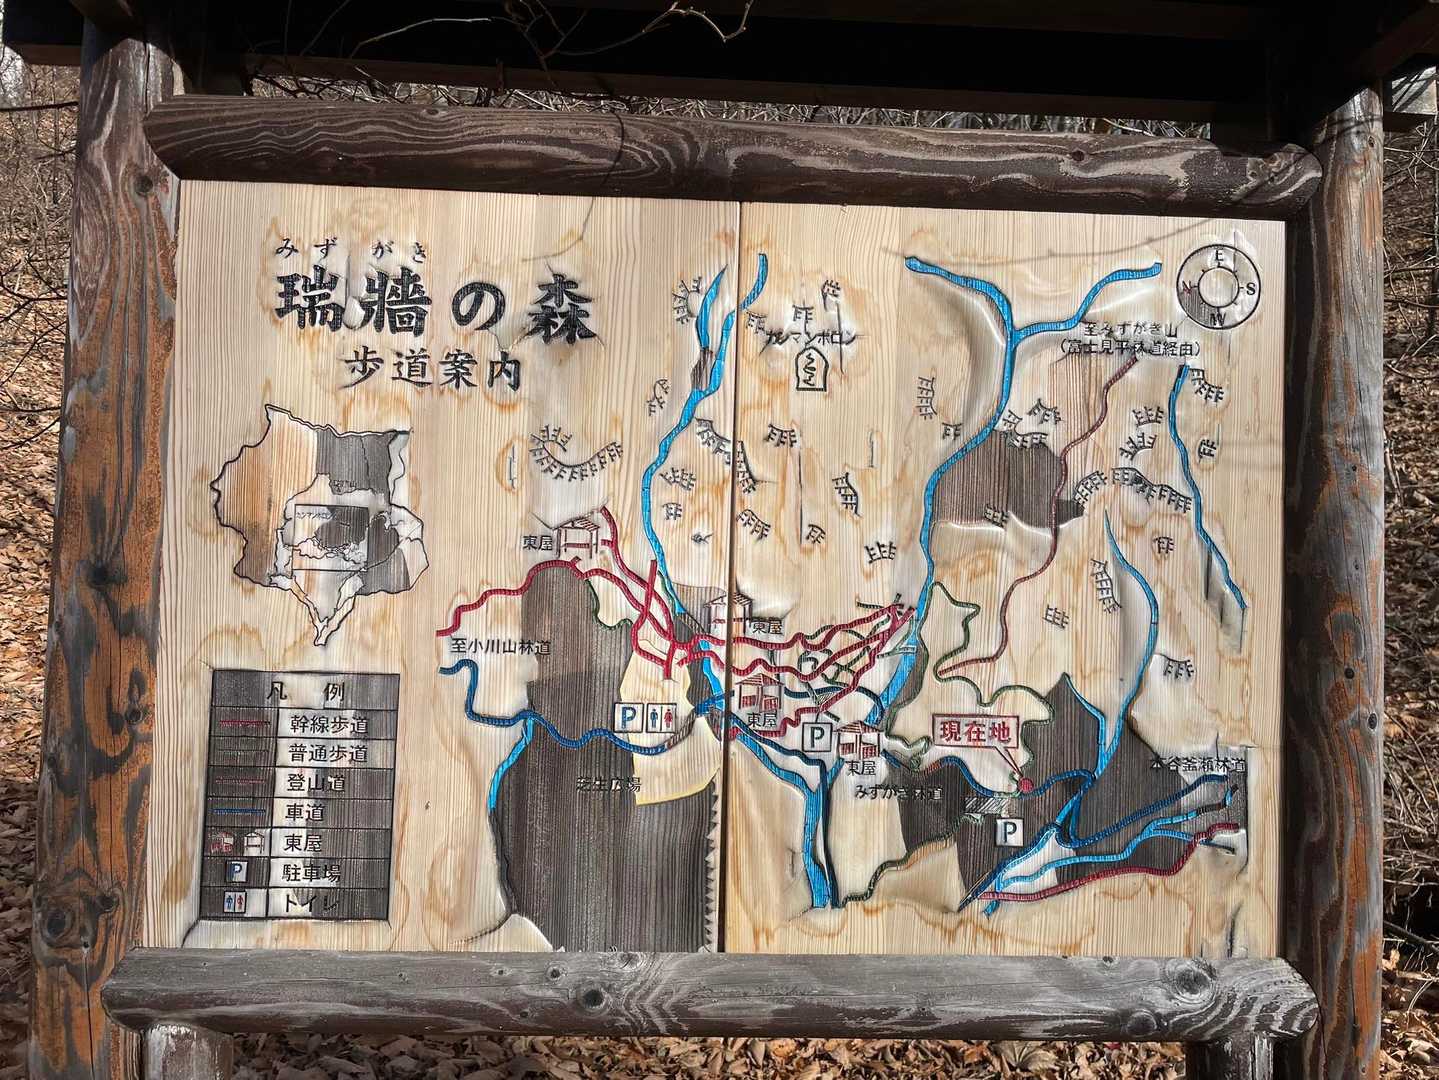 みずがき
瑞牆の森
歩道案内
カンマンボロン
至みずがき山
(富士見平林道経由)
E
N
S
W
東屋
至小川山林道
東屋
東屋
東屋
P
P
P
芝生広場
現在地
みずがき林道
本谷釜瀬林道
凡例
幹線歩道
普通歩道
登山道
車道
東屋
P
駐車場
トイレ